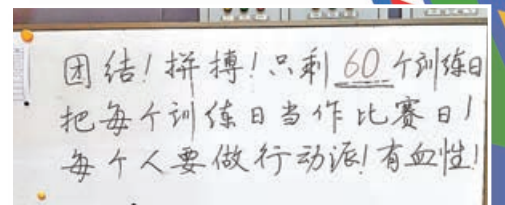 团结！拼搏！只剩 60 个训练日
把每个训练日当作比赛日！
每个人要做行动派！有血性！